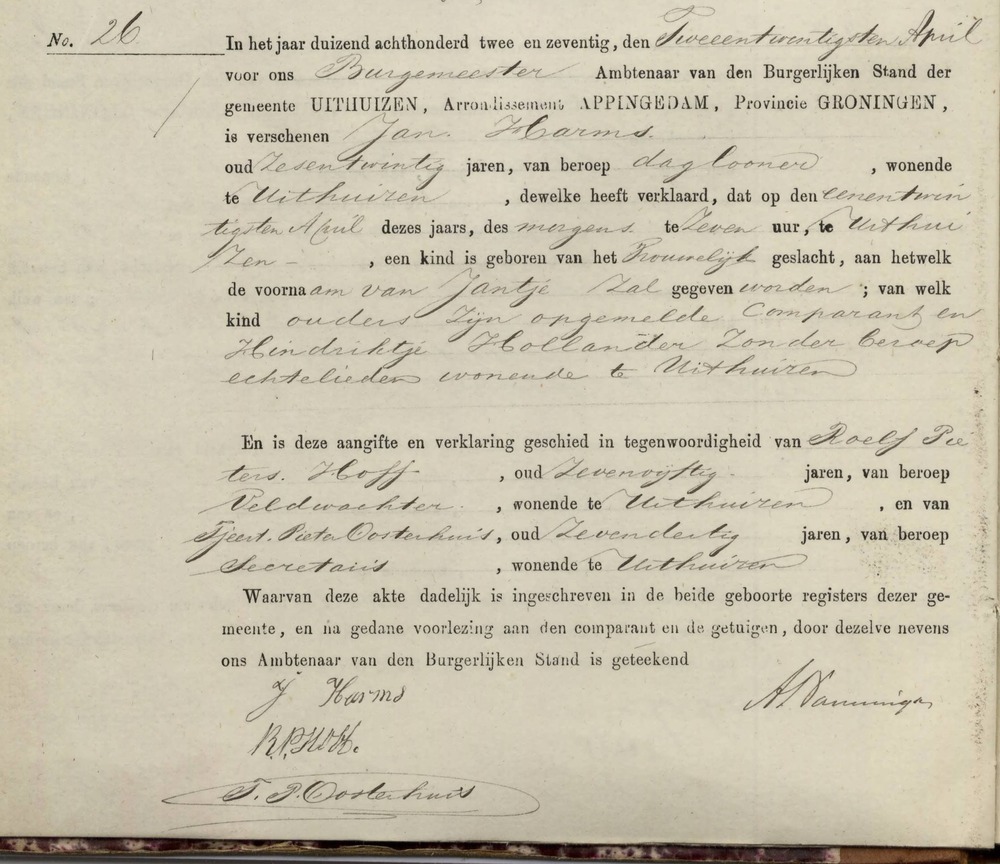 No. 26
In het jaar duizend achthonderd twee en zeventig, den Tweeentwintigsten April
voor ons Burgemeester Ambtenaar van den Burgerlijken Stand der
gemeente UITHUIZEN, Arrondissement APPINGEDAM, Provincie GRONINGEN,
is verschenen Jan Harms.
oud Zesentwintig jaren, van beroep daglooner, wonende
te Uithuizen, dewelke heeft verklaard, dat op den eenentwin
tigsten April dezes jaars, des morgens te Zeven uur, te Uithui
zen -, een kind is geboren van het Vrouwelijk geslacht, aan hetwelk
de voornaam van Jantje Zal gegeven worden; van welk
kind ouders Zijn opgemelde Comparant en
Hindriktje Hollander Zonder beroep
echtelieden wonende te Uithuizen
En is deze aangifte en verklaring geschied in tegenwoordigheid van Roelf Pie
ters. Hoff, oud Zevenvijftig jaren, van beroep
Veldwachter, wonende te Uithuizen, en van
Tjeert. Pieter Oosterhuis, oud Zevendertig jaren, van beroep
Secretaris, wonende te Uithuizen
Waarvan deze akte dadelijk is ingeschreven in de beide geboorte registers dezer ge-
meente, en na gedane voorlezing aan den comparant en de getuigen, door dezelve nevens
ons Ambtenaar van den Burgerlijken Stand is geteekend
J Harms
R. P. Hoff.
T. P. Oosterhuis